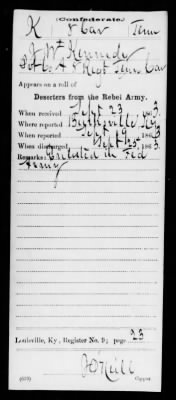 (Confederate.)
K 8 Cav Tenn
J Wm Kennedy
Pvt Co. A 8 Regt Tenn Cav
Appears on a roll of
Deserters from the Rebel Army.
When received Sept 23 1863.
Where reported Ky
When reported Sept 19 1863
When discharged Sept 25 1863
Remarks: Enlisted in Fed
Army
Louisville, Ky., Register No. 9; page 23
(639) Copyist.